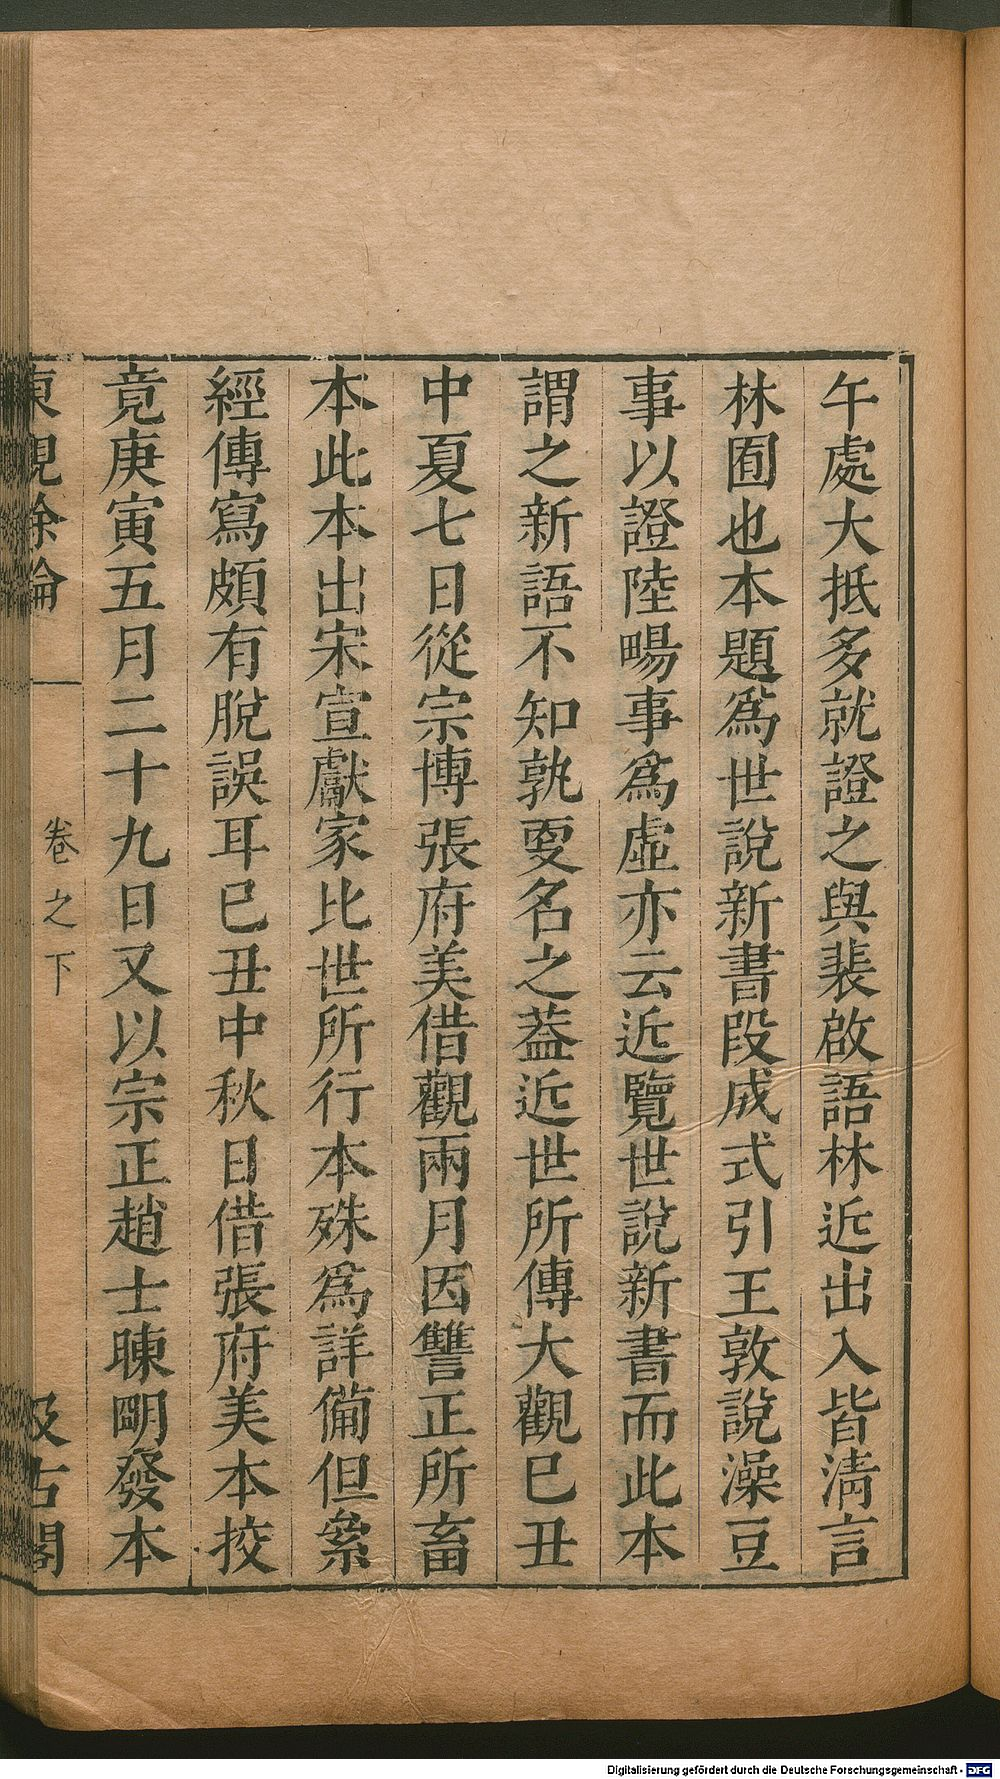 午處大抵多就證之與裴啟語林近出入皆清言
林囿也本題爲世說新書段成式引王敦說澡豆
事以證陸暢事爲虛亦云近覽世說新書而此本
謂之新語不知孰更名之蓋近世所傳大觀已丑
中夏七日從宗博張府美借觀兩月因讐正所畜
本此本出宋宣獻家比世所行本殊爲詳備但絫
經傳寫頗有脫誤耳已丑中秋日借張府美本挍
竟庚寅五月二十九日又以宗正趙士暕明發本
東觀餘論 卷之下 汲古閣
Digitalisierung gefördert durch die Deutsche Forschungsgemeinschaft - DFG